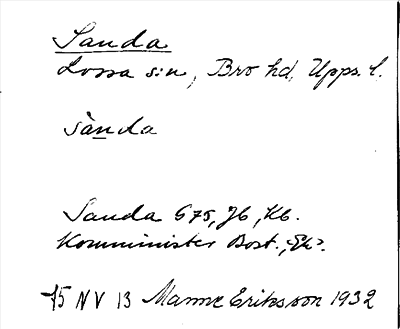 Sanda
Lossa s:n, Bro hd, Upps. l.
sànda
Sanda 675, Jb, Kb.
Komminister Bost.,
75 NV 13 Manne Eriksson 1932